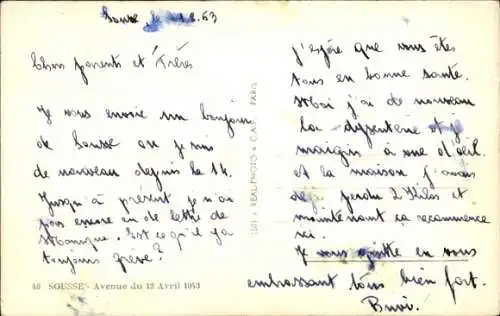 Sousse, le 8.53
Chers parents et Frères
Je vous envoie un bonjour
de Sousse où je suis
de nouveau depuis le 14.
Jusqu'à présent je n'ai
pas encore eu de lettre de
Monique. Est ce qu'il y a
toujours grève?
1081 • REAL-PHOTO • C.A.P. PARIS
40 SOUSSE - Avenue du 12 Avril 1943
j'espère que vous êtes
tous en bonne santé.
Moi j'ai de nouveau
la dysenterie et je
maigris à vue d'œil
et la maison j'avais
déjà perdu 2 Kilos et
maintenant ça recommence
ici.
Je vous quitte en vous
embrassant tous bien fort.